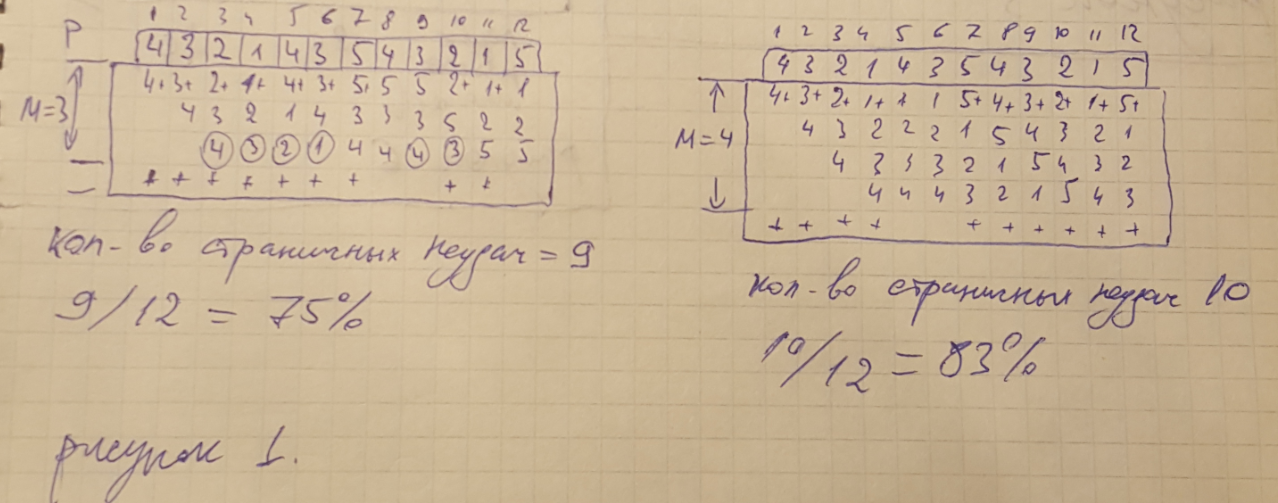 1 2 3 4 5 6 7 8 9 10 11 12
P 4 3 2 1 4 3 5 4 3 2 1 5
4+ 3+ 2+ 1+ 4+ 3+ 5+ 5 5 2+ 1+ 1
M=3 4 3 2 1 4 3 3 3 5 2 2
4 3 2 1 4 4 4 3 5 5
+ + + + + + + + +
Кол-во страничных неудач = 9
9/12 = 75%
рисунок 1.
1 2 3 4 5 6 7 8 9 10 11 12
4 3 2 1 4 3 5 4 3 2 1 5
4+ 3+ 2+ 1+ 1 1 5+ 4+ 3+ 2+ 1+ 5+
M=4 4 3 2 2 2 1 5 4 3 2 1
4 3 3 3 2 1 5 4 3 2
4 4 4 3 2 1 5 4 3
+ + + + + + + + + +
Кол-во страничных неудач 10
10/12 = 83%